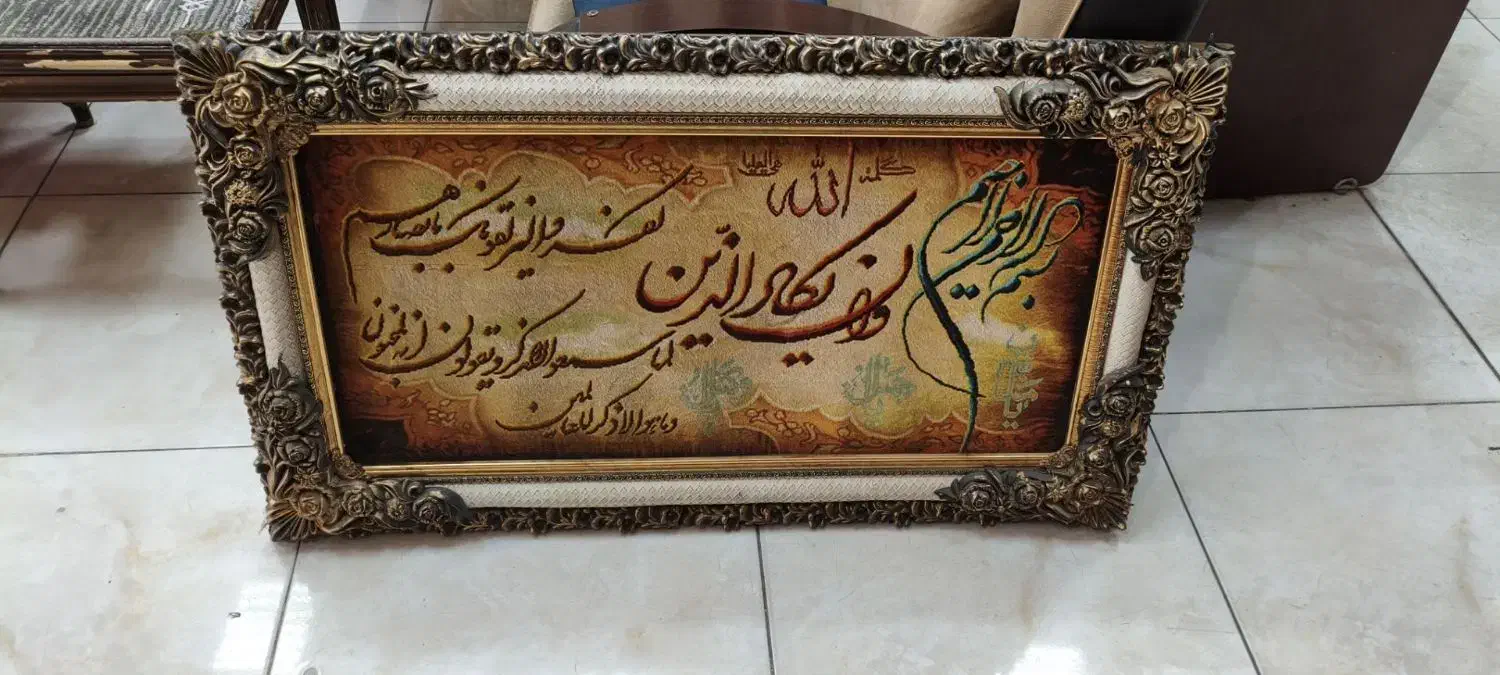 بسم الله الرحمن الرحیم
کلمة الله هی العلیا
وان یکاد الذین
کفروا لیزلقونک بابصارهم
لما سمعوا الذکر و یقولون انه لمجنون
وما هو الا ذکر للعالمین